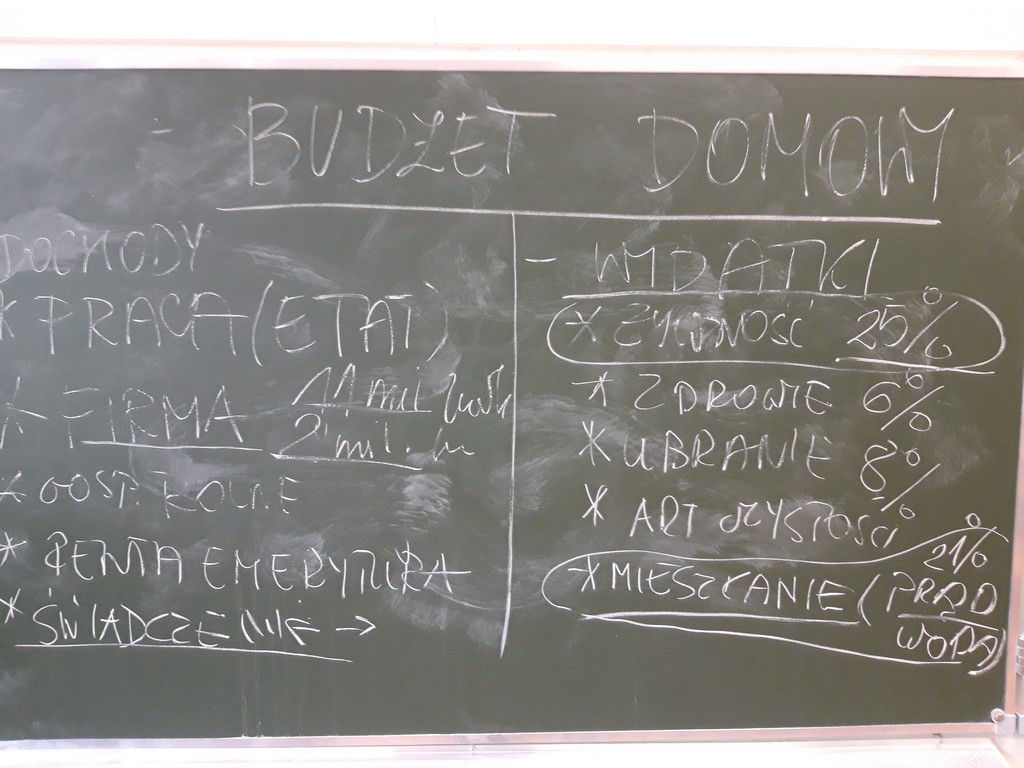 BUDŻET DOMOWY
DOCHODY
* PRACA (ETAT)
* FIRMA 11 mil
2 mil.
* GOSP. ROLNE
* RENTA EMERYTURA
* ŚWIADCZENIE →
- WYDATKI
* ŻYWNOŚĆ 25%
* ZDROWIE 6%
* UBRANIE 8%
* ART CZYSTOŚCI
* MIESZKANIE (PRĄD 21%
WODA)